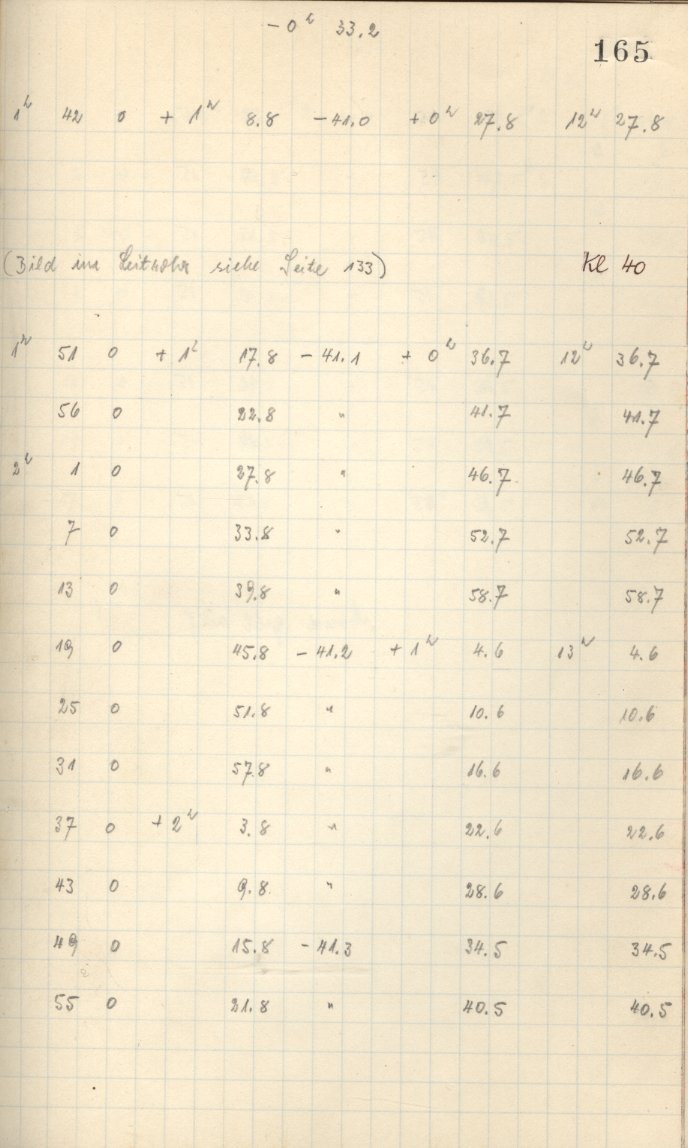 - 0ʰ 33.2
165
1ʰ 42 0 + 1ʰ 8.8 - 41.0 + 0ʰ 27.8 12ʰ 27.8
(Bild im Leitrohr siehe Seite 133) Kl 40
1ʰ 51 0 + 1ʰ 17.8 - 41.1 + 0ʰ 36.7 12ʰ 36.7
56 0 22.8 " 41.7 41.7
2ʰ 1 0 27.8 " 46.7 46.7
7 0 33.8 " 52.7 52.7
13 0 39.8 " 58.7 58.7
19 0 45.8 - 41.2 + 1ʰ 4.6 13ʰ 4.6
25 0 51.8 " 10.6 10.6
31 0 57.8 " 16.6 16.6
37 0 + 2ʰ 3.8 " 22.6 22.6
43 0 9.8 " 28.6 28.6
49 0 15.8 - 41.3 34.5 34.5
55 0 21.8 " 40.5 40.5